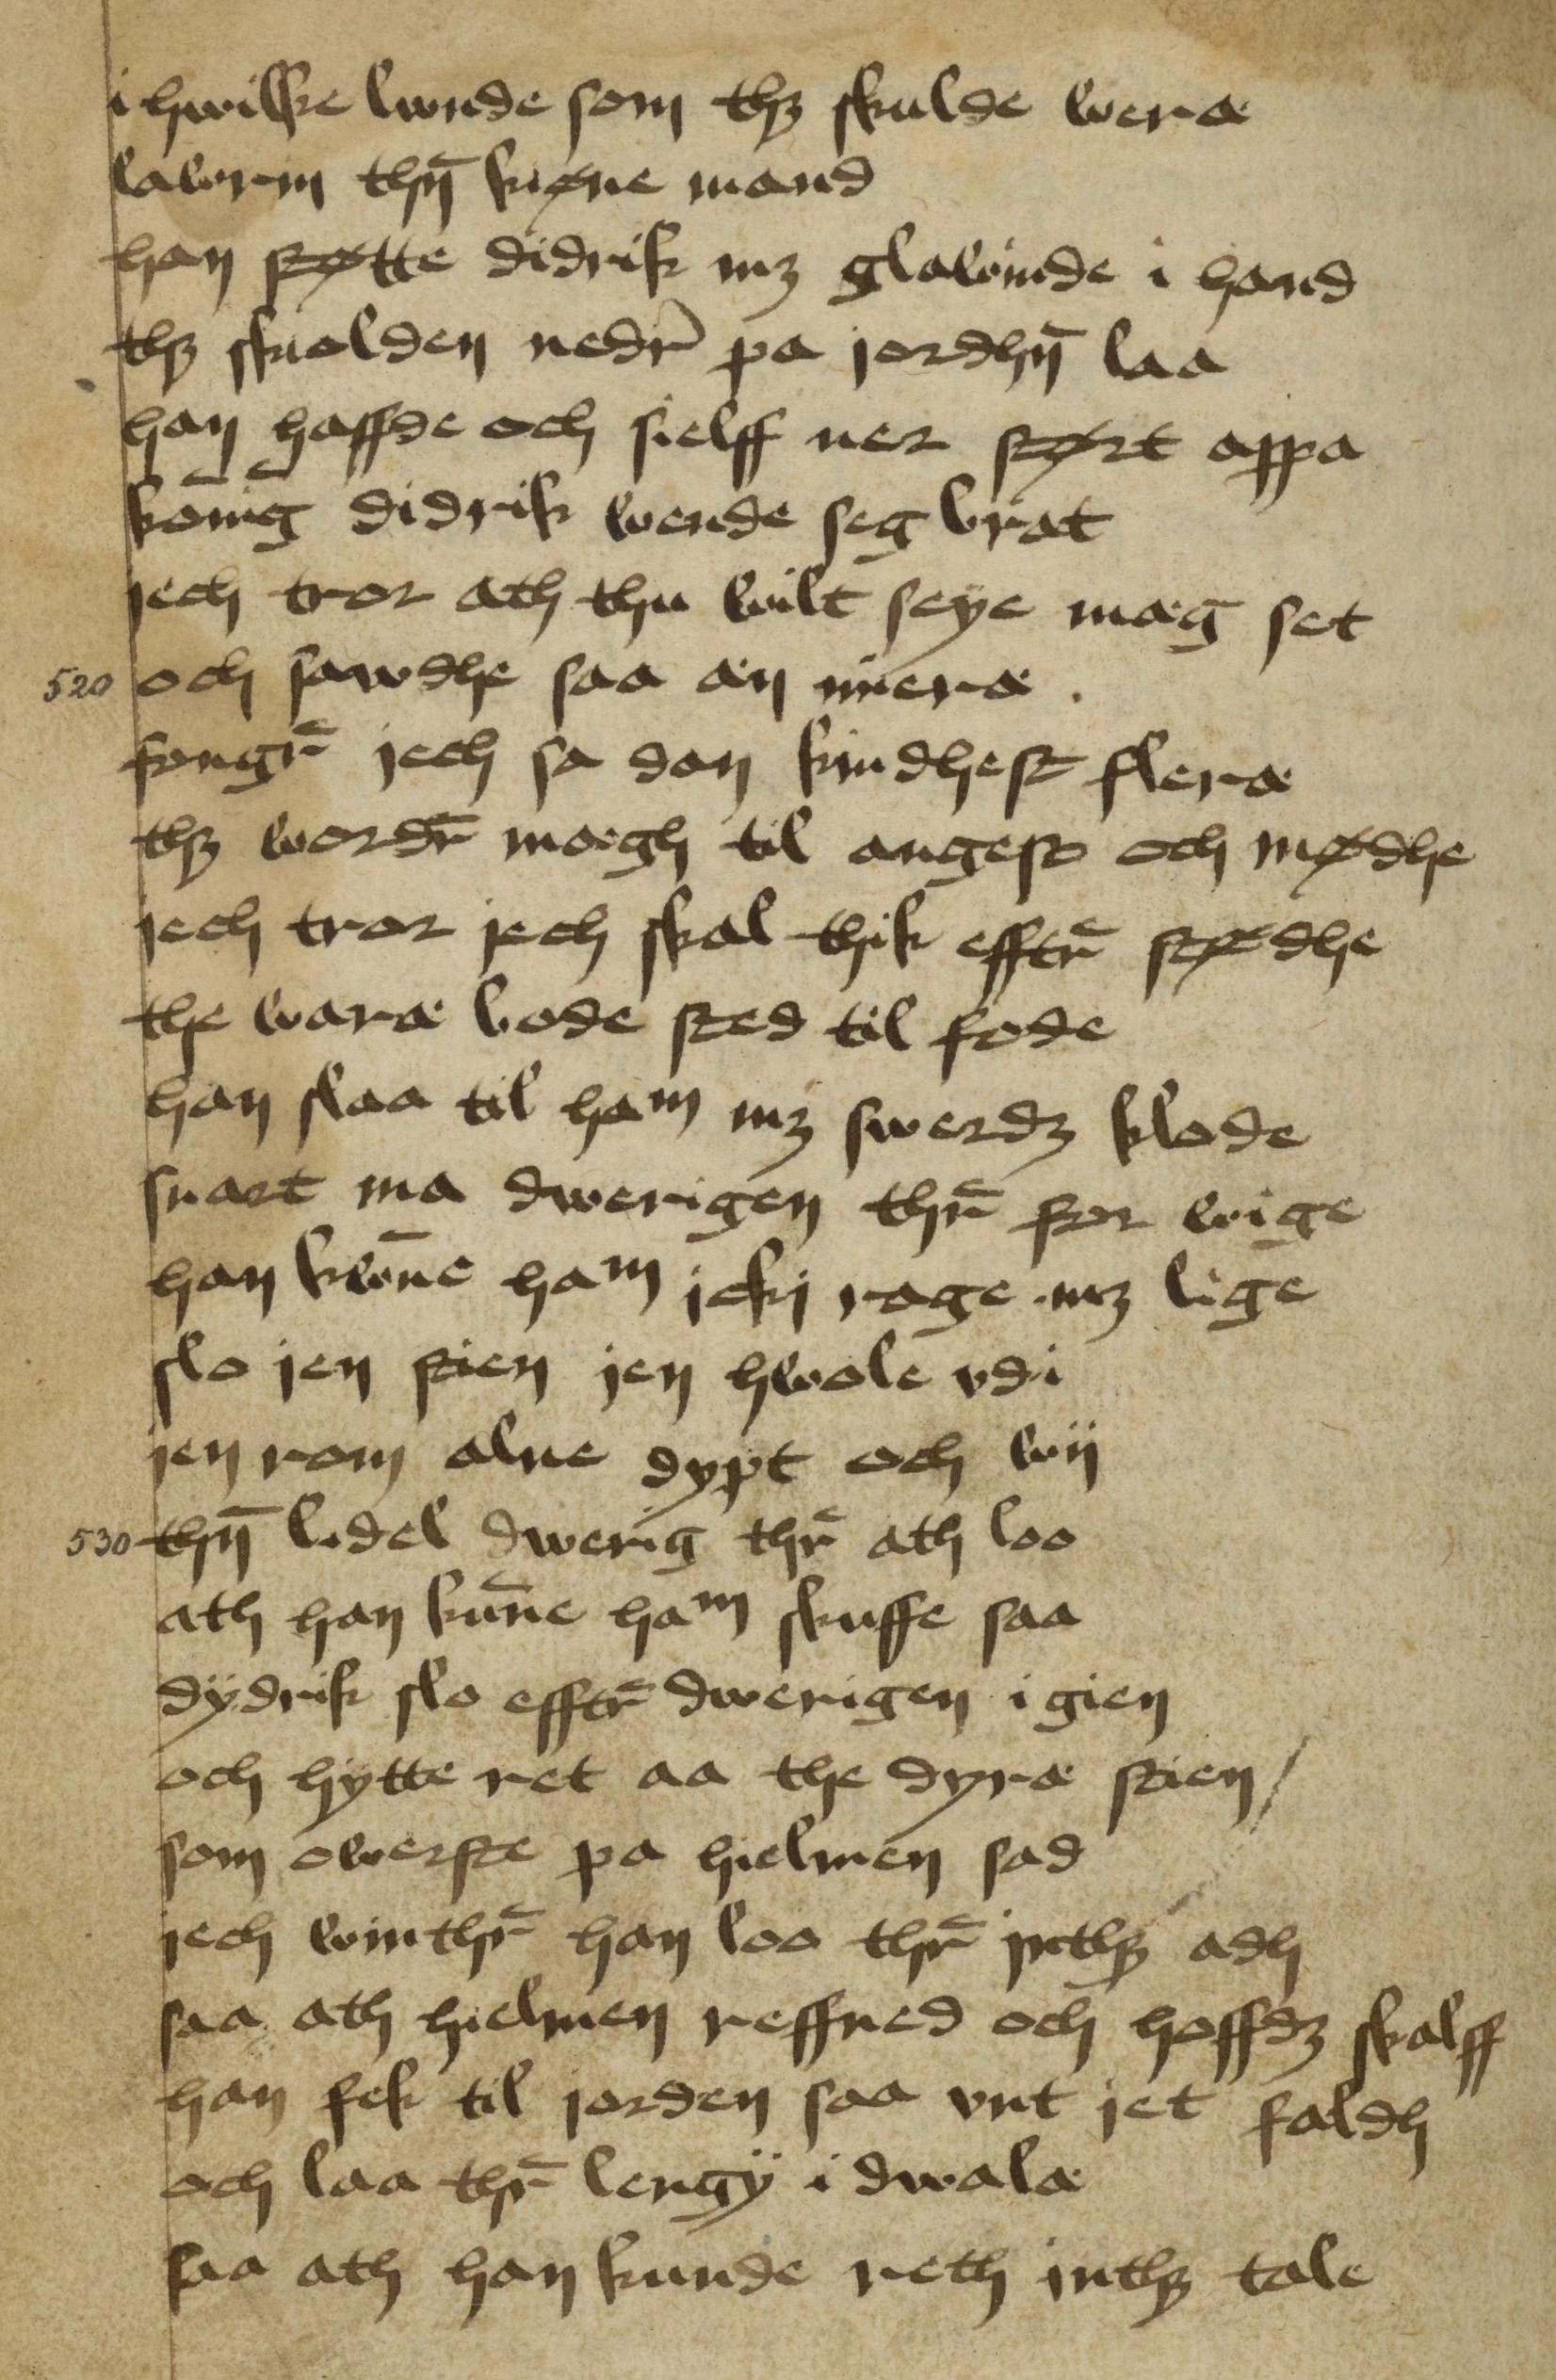 i hwilke lwnde som thꝫ skulde weræ
lawrin thn̄ kiøne mand
han støtte didrik mꝫ glawinde i hand
thꝫ skiolden nedr̄ pa jordhn̄ laa
han haffde och sielff ner størt appa
kōnīg didrik wende seg vrat
jech tror ath thu wilt seye mæg set
520 och sawdhe saa æn mieræ
fongr̄ jech sa dan kindhest fleræ
thꝫ wordr̄ mægh til angest och mødhe
jech tror jech skal thik efftr̄ stødhe
the waræ bode sted til fode
han slaa til ham mꝫ swerdꝫ klode
snart ma dwerigen thr̄ for wige
han kwn̄e ham jcki rage mꝫ lige
slo jen stien jen hwole vdi
jen rom alne dypt och wij
530 thn̄ lidel dwerig thr̄ ath loo
ath han kun̄e ham skuffe saa
dÿdrik slo efftr̄ dwerigen i gien
och hytte ret aa the dyræ stien /
som owerste pa hielmen sad
jech winthr̄ han loo thr̄ jnthꝫ adh
saa ath hielmen reffned och hoffdꝫ skalff
han fek til jorden saa vnt jet faldh
och laa thr̄ lengÿ i dwalæ
saa ath han kunde reth jnthꝫ tale